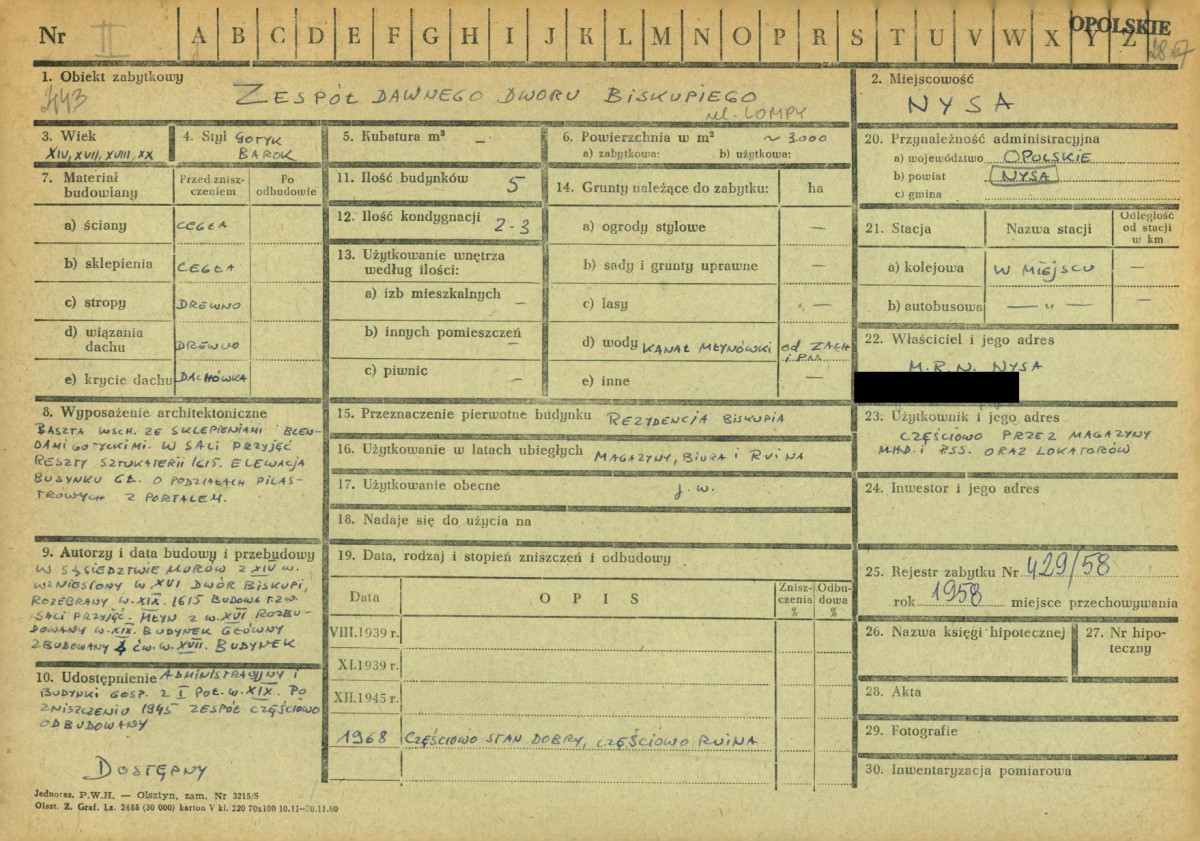 Nr II A B C D E F G H I J K L M N O P R S T U V W X Y Z
OPOLSKIE
1. Obiekt zabytkowy
443
ZESPÓŁ DAWNEGO DWORU BISKUPIEGO
ul. LOMPY
2. Miejscowość
NYSA
3. Wiek
XIV, XVII, XVIII, XX
4. Styl GOTYK
BAROK
5. Kubatura m³ –
6. Powierzchnia w m² ~ 3.000
a) zabytkowa: b) użytkowa:
7. Materiał budowlany
Przed zniszczeniem
Po odbudowie
a) ściany CEGŁA
b) sklepienia CEGŁA
c) stropy DREWNO
d) wiązania dachu DREWNO
e) krycie dachu DACHÓWKA
8. Wyposażenie architektoniczne
BASZTA WSCH. ZE SKLEPIENIAMI BLEN-
DAMI GOTYCKIMI. W SALI PRZYJĘĆ
RESZTY SZTUKATERII 1615. ELEWACJA
BUDYNKU GŁ. O PODZIAŁACH PILAS-
TROWYCH Z PORTALEM.
9. Autorzy i data budowy i przebudowy
W SĄSIEDZTWIE MURÓW Z XIV W.
WZNIESIONY W XVI DWÓR BISKUPI,
ROZEBRANY W. XIX. 1615 BUDOWA T.ZW.
SALI PRZYJĘĆ. MŁYN Z W. XVI ROZBU-
DOWANY W. XIX. BUDYNEK GŁÓWNY
ZBUDOWANY ĆW. W. XVII. BUDYNEK
10. Udostępnienie ADMINISTRACYJNY I
BUDYNKI GOSP. Z I POŁ. W. XIX. PO
ZNISZCZENIU 1945 ZESPÓŁ CZĘŚCIOWO
ODBUDOWANY
DOSTĘPNY
11. Ilość budynków 5
12. Ilość kondygnacji 2-3
13. Użytkowanie wnętrza
według ilości:
a) izb mieszkalnych –
b) innych pomieszczeń –
c) piwnic –
14. Grunty należące do zabytku: ha
a) ogrody stylowe –
b) sady i grunty uprawne –
c) lasy –
d) wody KANAŁ MŁYNÓWKI od ZACH
i PŁN.
e) inne –
15. Przeznaczenie pierwotne budynku REZYDENCJA BISKUPIA
16. Użytkowanie w latach ubiegłych MAGAZYNY, BIURA I RUINA
17. Użytkowanie obecne j. w.
18. Nadaje się do użycia na
19. Data, rodzaj i stopień zniszczeń i odbudowy
Data
OPIS
Zniszczenia %
Odbudowa %
VIII.1939 r.
XI.1939 r.
XII.1945 r.
1968 CZĘŚCIOWO STAN DOBRY, CZĘŚCIOWO RUINA
20. Przynależność administracyjna
a) województwo OPOLSKIE
b) powiat NYSA
c) gmina
21. Stacja
Nazwa stacji
Odległość
od stacji
w km
a) kolejowa W MIEJSCU –
b) autobusowa — „ — –
22. Właściciel i jego adres
M.R.N. NYSA
23. Użytkownik i jego adres
CZĘŚCIOWO PRZEZ MAGAZYNY
M.H.D. I PSS. ORAZ LOKATORÓW
24. Inwestor i jego adres
25. Rejestr zabytku Nr 429/58
rok 1958 miejsce przechowywania
26. Nazwa księgi hipotecznej
27. Nr hipoteczny
28. Akta
29. Fotografie
30. Inwentaryzacja pomiarowa
Jednoraz. P.W.H. — Olsztyn, zam. Nr 3215/S
Olszt. Z. Graf. Lz. 2485 (30 000) karton V kl. 220 70x100 10.11—30.11.60